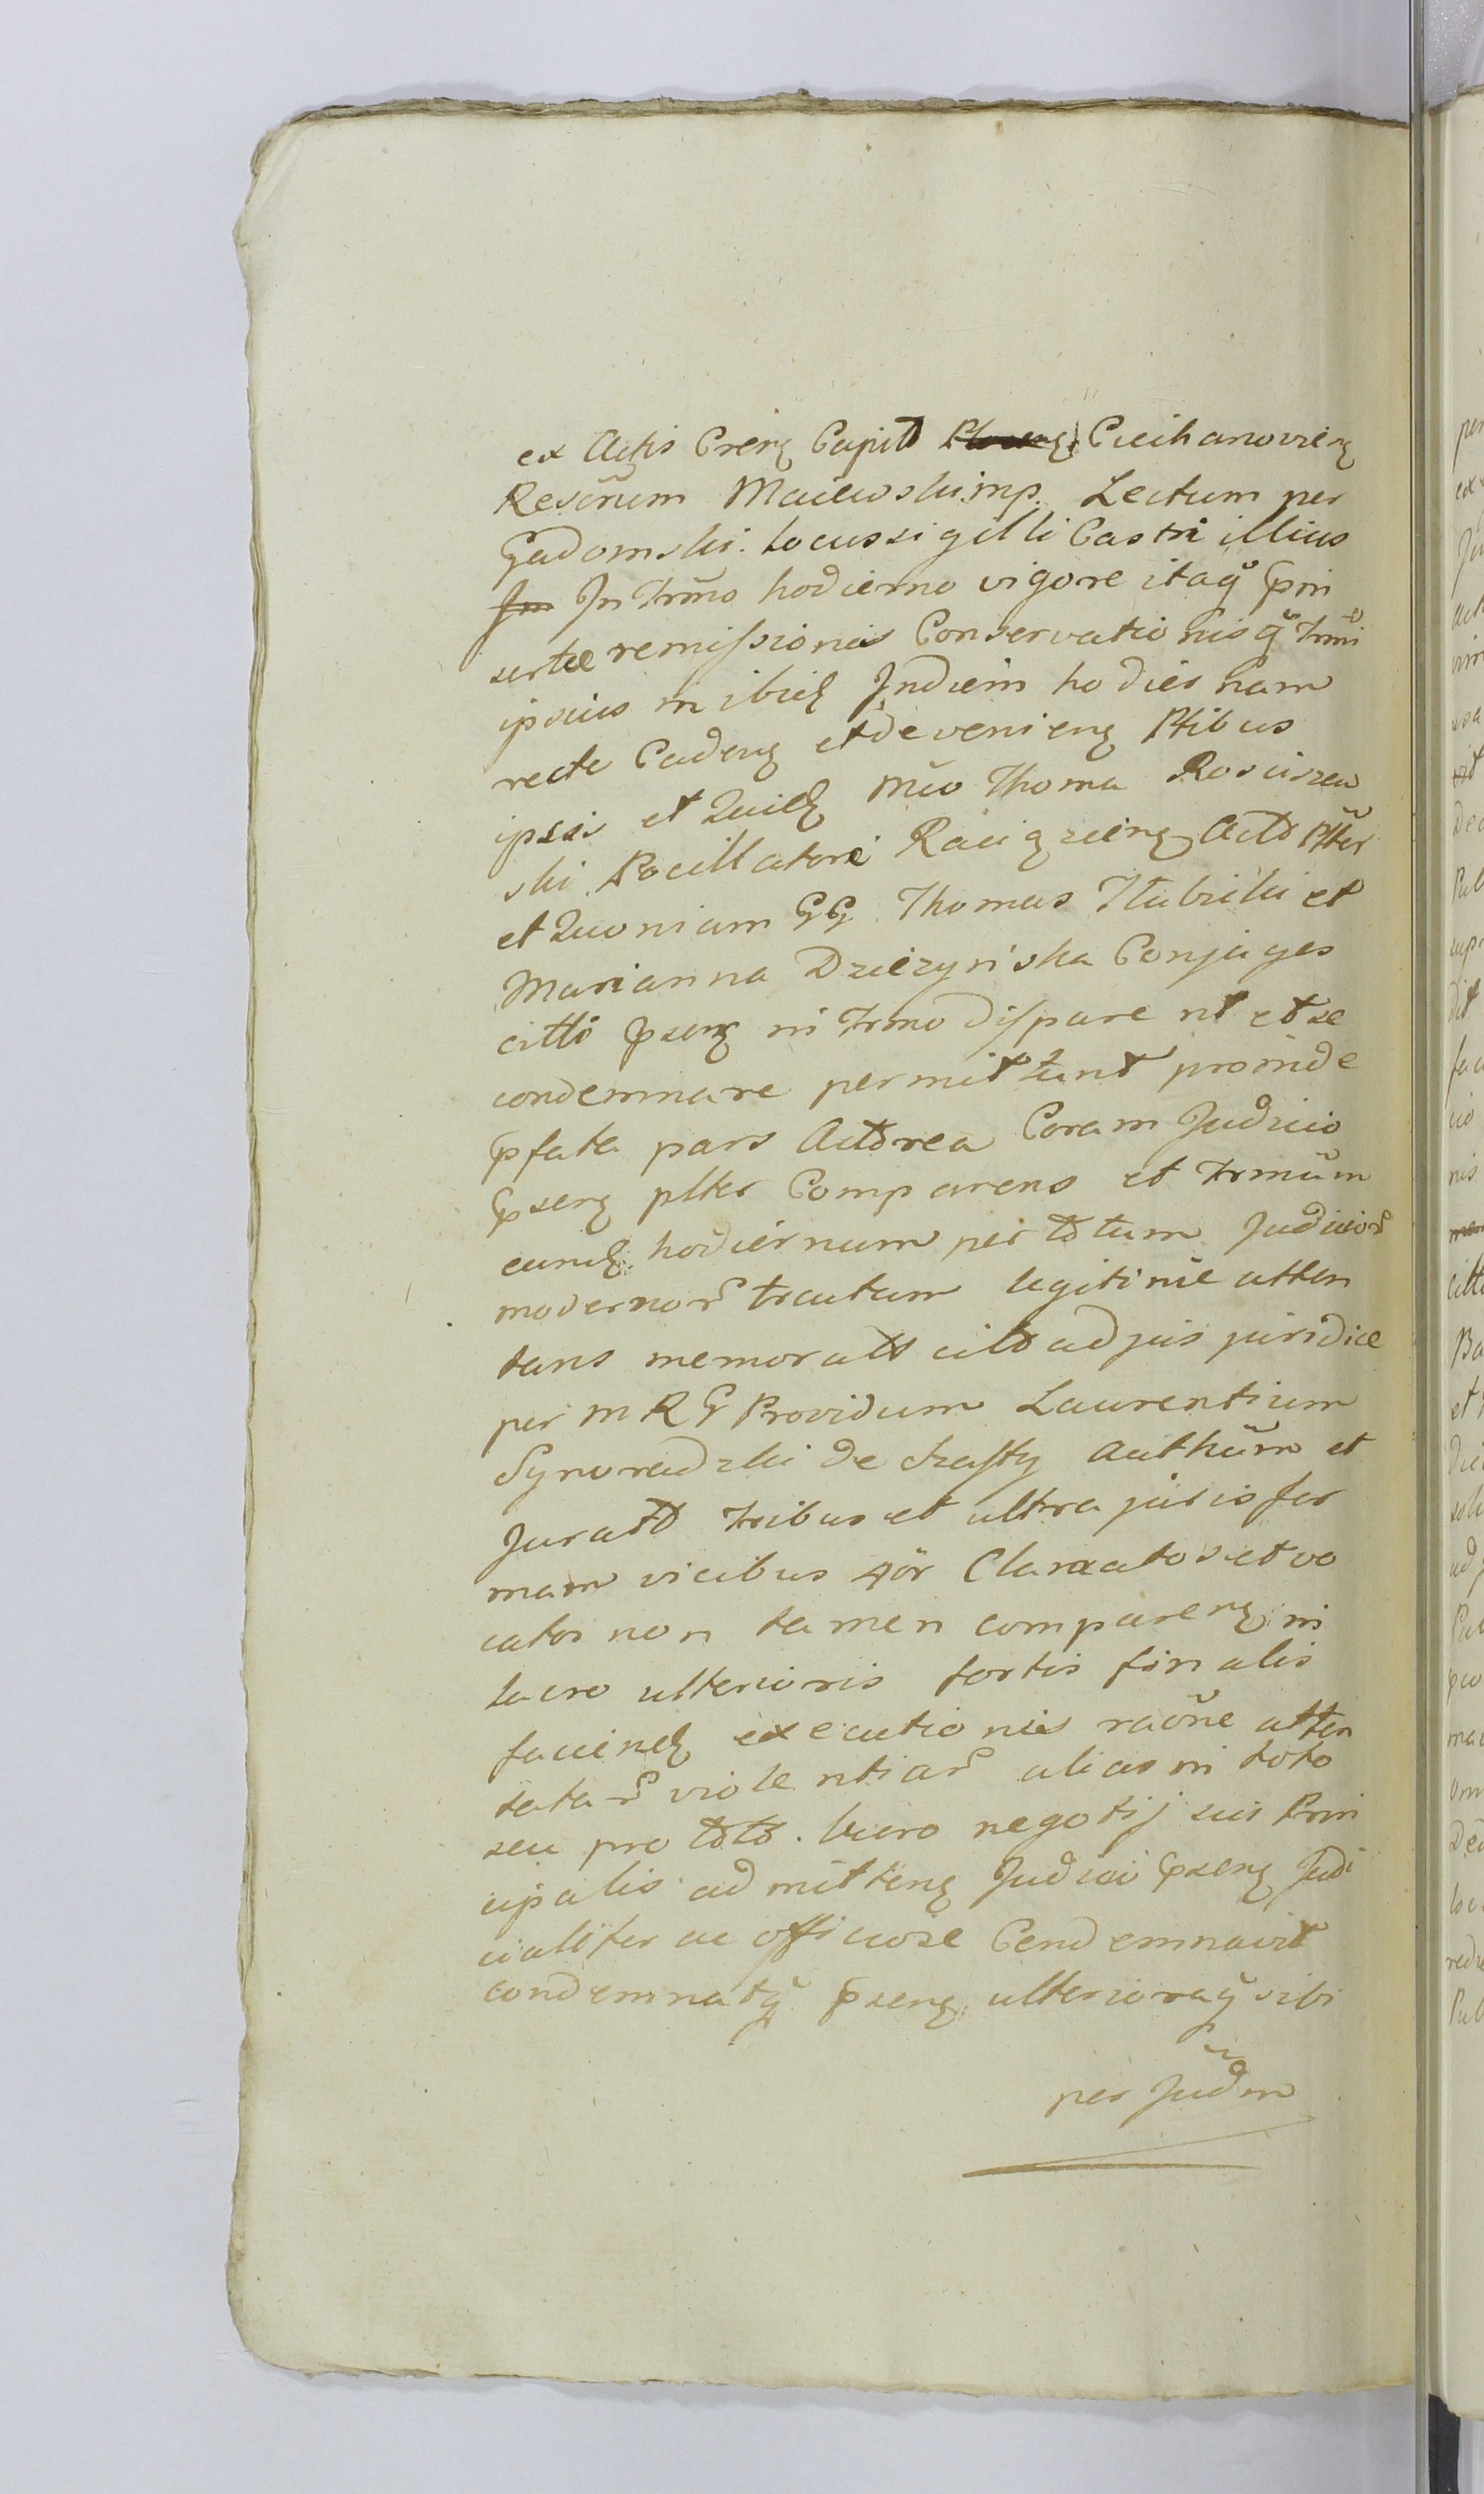 ex Actis Crenꝫ Capitt Ciechanovienꝫ
Rescrium Maiewski mp. Lectum per
Gadomski. Locus sigilli Castri illius
Jn Trm̃o hodierno vigore itaq̃ p̱rin
sertae remissionis Conservationisq̃ Trmi
ipsius in ibidꝫ Jndiem hodiernam
recte Cadenꝫ et devenienꝫ Ptibus
ipsis et quidꝫ Mco Thoma Rosciszew
ski Pocillatore Raciązenꝫ Act Plter
et Quoniam GG Thomas Kubicki et
Marianna Dziezynska Conjuges
citti p̱senꝫ in Trmo disparent et se
condemnare permittunt proinde
p̱fata pars Actorea Coram Judicio
p̱senꝫ plter Comparens et Trmũm
eundꝫ hodiernum per totum Judicior̃
modernor̃ tractum legitime atten
tans memoratt citt ad jus juridice
per M R G Providum Laurentium
Synoradzki de Authũm et
Juratt tribus et ultra juris for
mam vicibus qõr Clamatos et vo
catos non tamen comparenꝫ in
lucro ulterioris fortis finalis
faciendꝫ executionis raõne atten
tatar̃ violentiar̃ alias in toto
seu pro toto. lucro negotij sui Prin
cipalis admittenꝫ Judicii p̱senꝫ Judi
cialiter ac officiose Condemnavit
condemnatq̃ p̱senꝫ ulterioraq̃ sibi
per Jud̃m